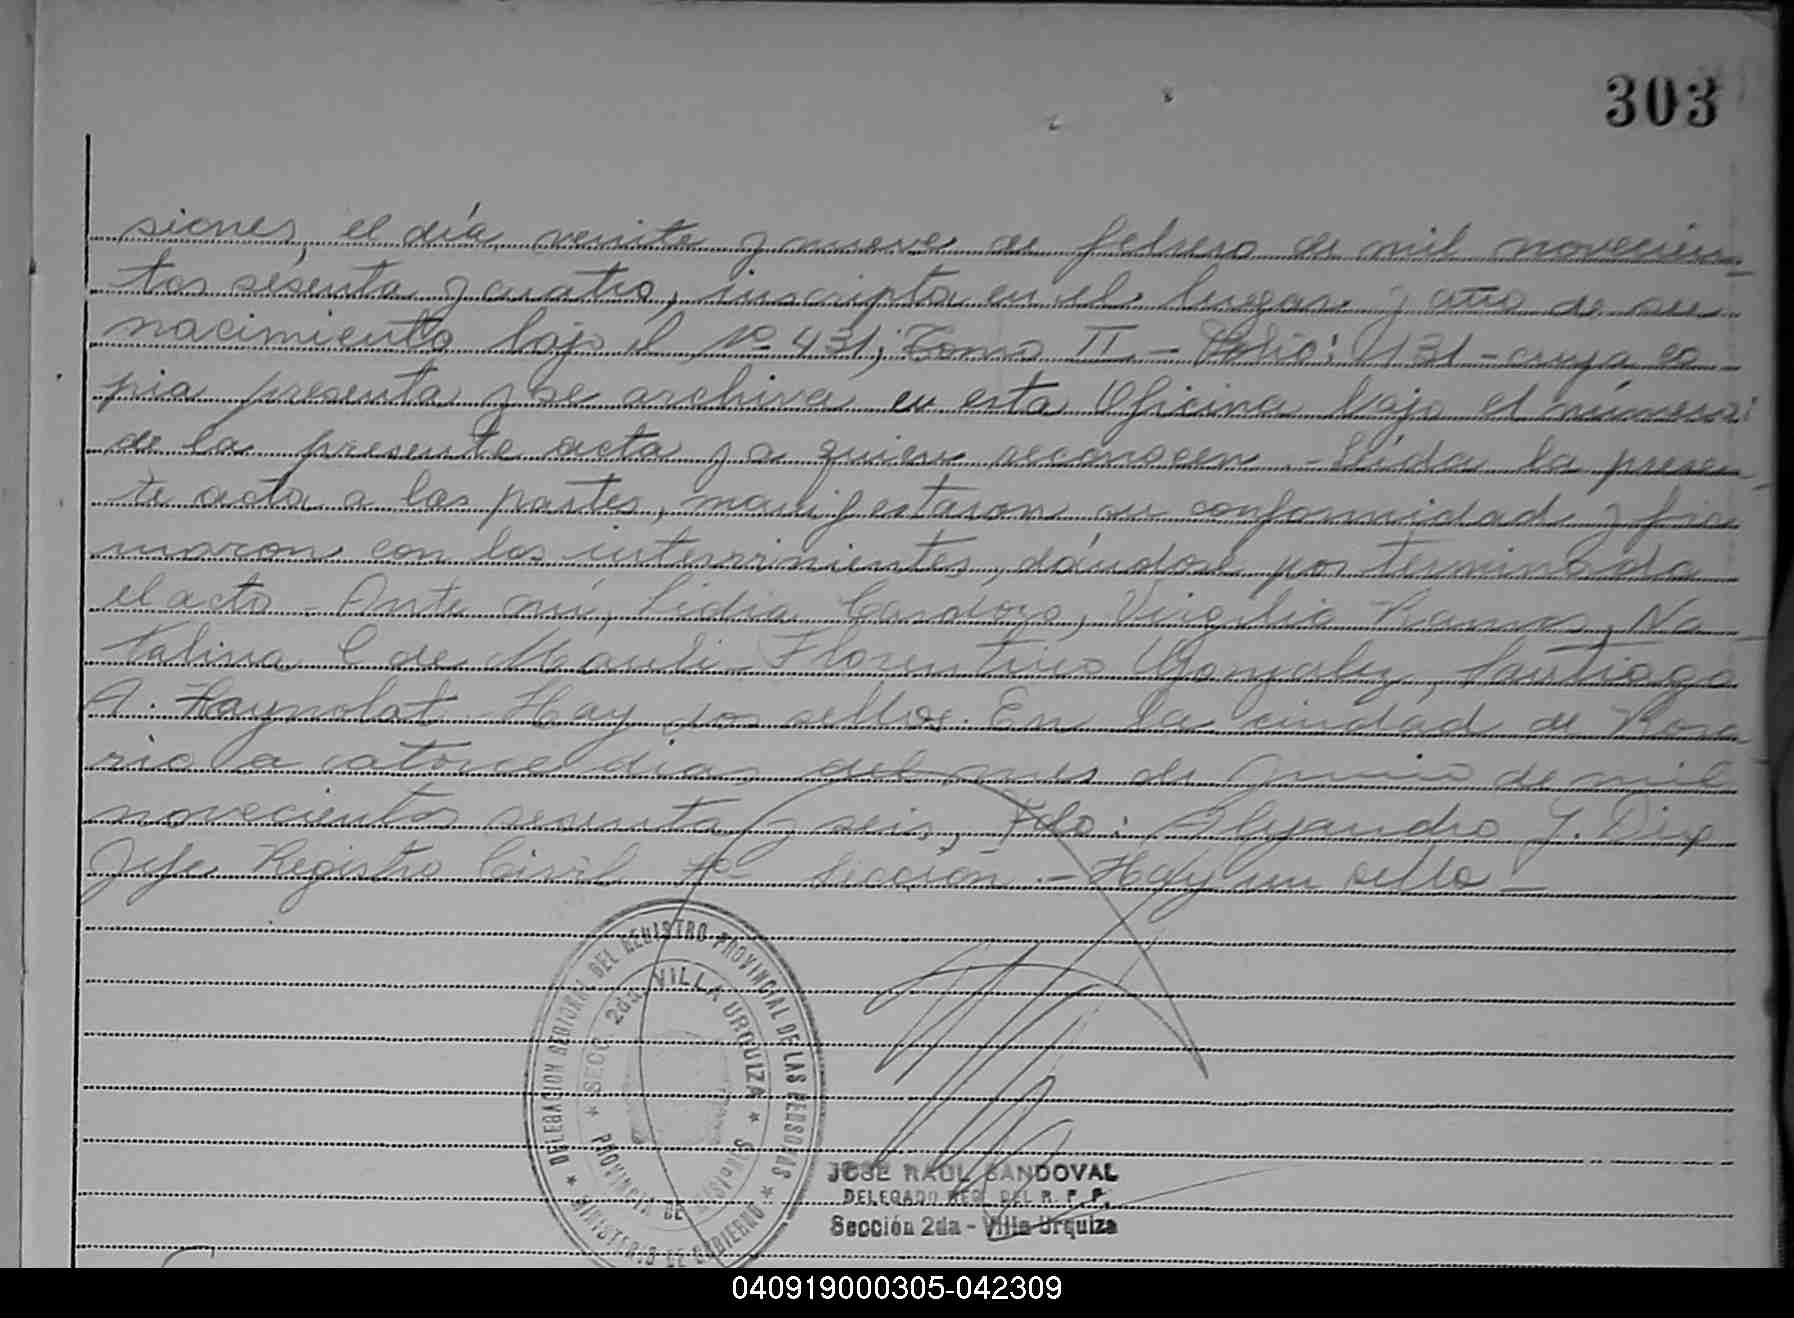 303
siones, el día veinte y nueve de febrero de mil novecien-
tos sesenta y cuatro, inscripta en el lugar y año de su
nacimiento bajo el Nº 431, Tomo II - Folio: 431 - cuya co
pia presenta y se archiva en esta Oficina bajo el número
de la presente acta y a quien reconocen. - Leída la presen-
te acta a las partes, manifestaron su conformidad y fir
maron con los intervinientes, dándose por terminada
el acto - Ante mí, Lidia Cardozo, Virgilio Ramos, Na-
talina C de Mauli - Florentino González, Santiago
A. Haynolat - Hay dos sellos. En la ciudad de Rosa
rio a catorce días del mes de Junio de mil
novecientos sesenta y seis, Fdo: Alejandro J. Diez
Jefe Registro Civil Sección. - Hay un sello -
* DELEGACION REGIONAL DEL REGISTRO PROVINCIAL DE LAS PERSONAS *
MINISTERIO DE GOBIERNO
* SECC. 2da. VILLA URQUIZA *
PROVINCIA DE MISIONES
JOSE RAUL SANDOVAL
DELEGADO REG. DEL R. P. P.
Sección 2da - Villa Urquiza
040919000305-042309